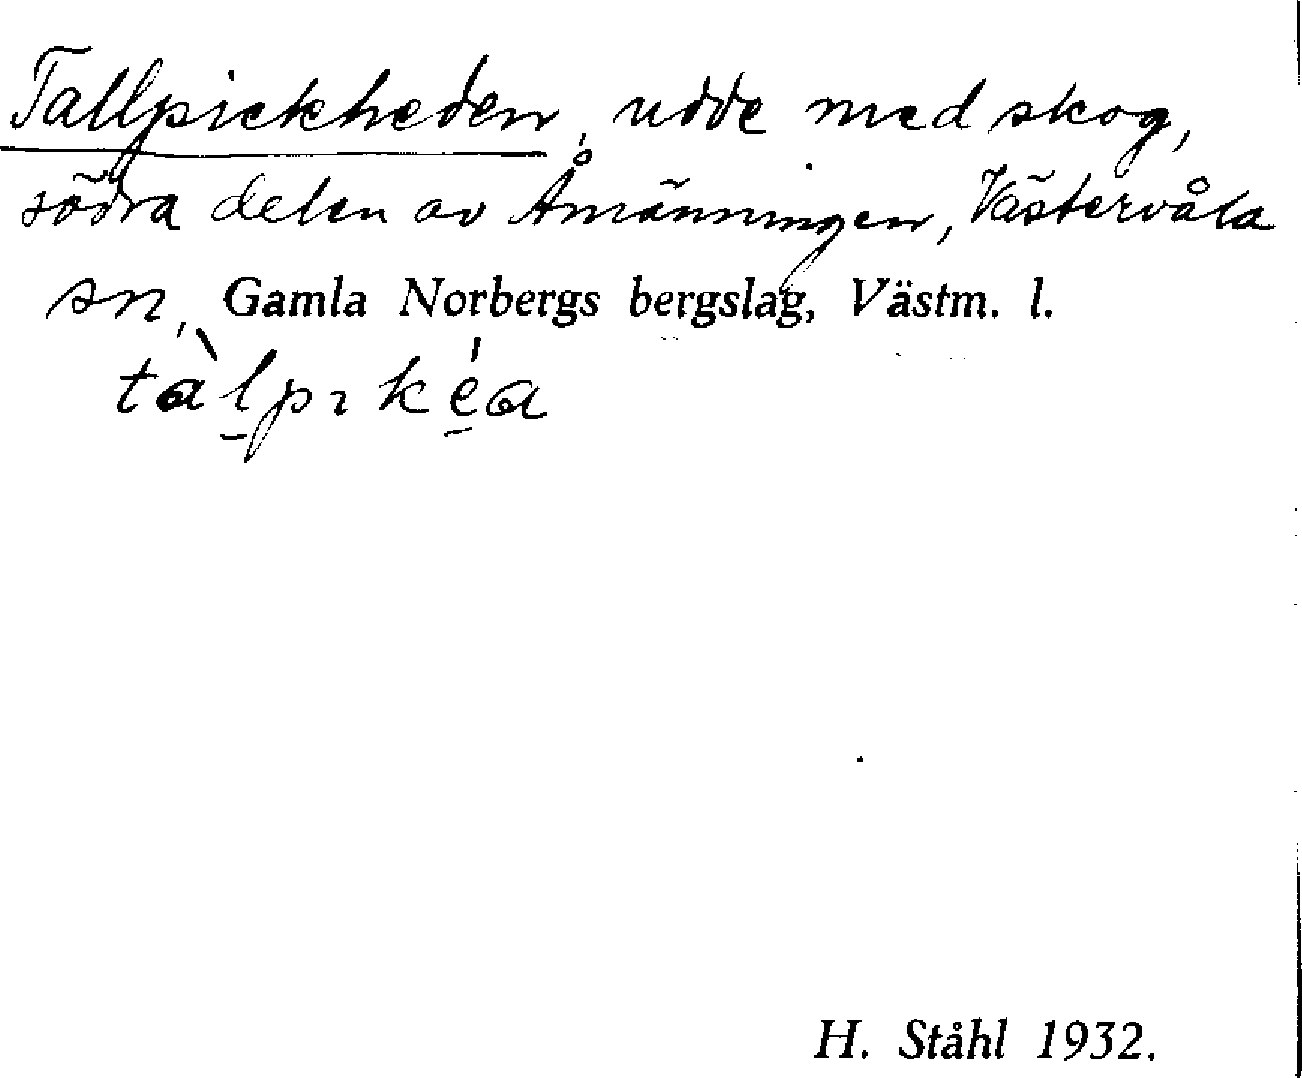 Tallpickheden, udde med skog,
södra delen av Åmänningen, Västervåla
sn, Gamla Norbergs bergslag, Västm. l.
tàl̠pıké̠a
H. Ståhl 1932.